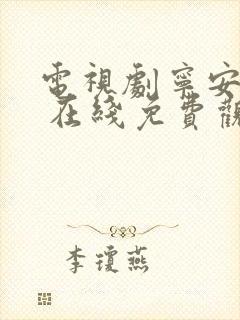 電視劇寧安
在綫免費觀
李瓊燕